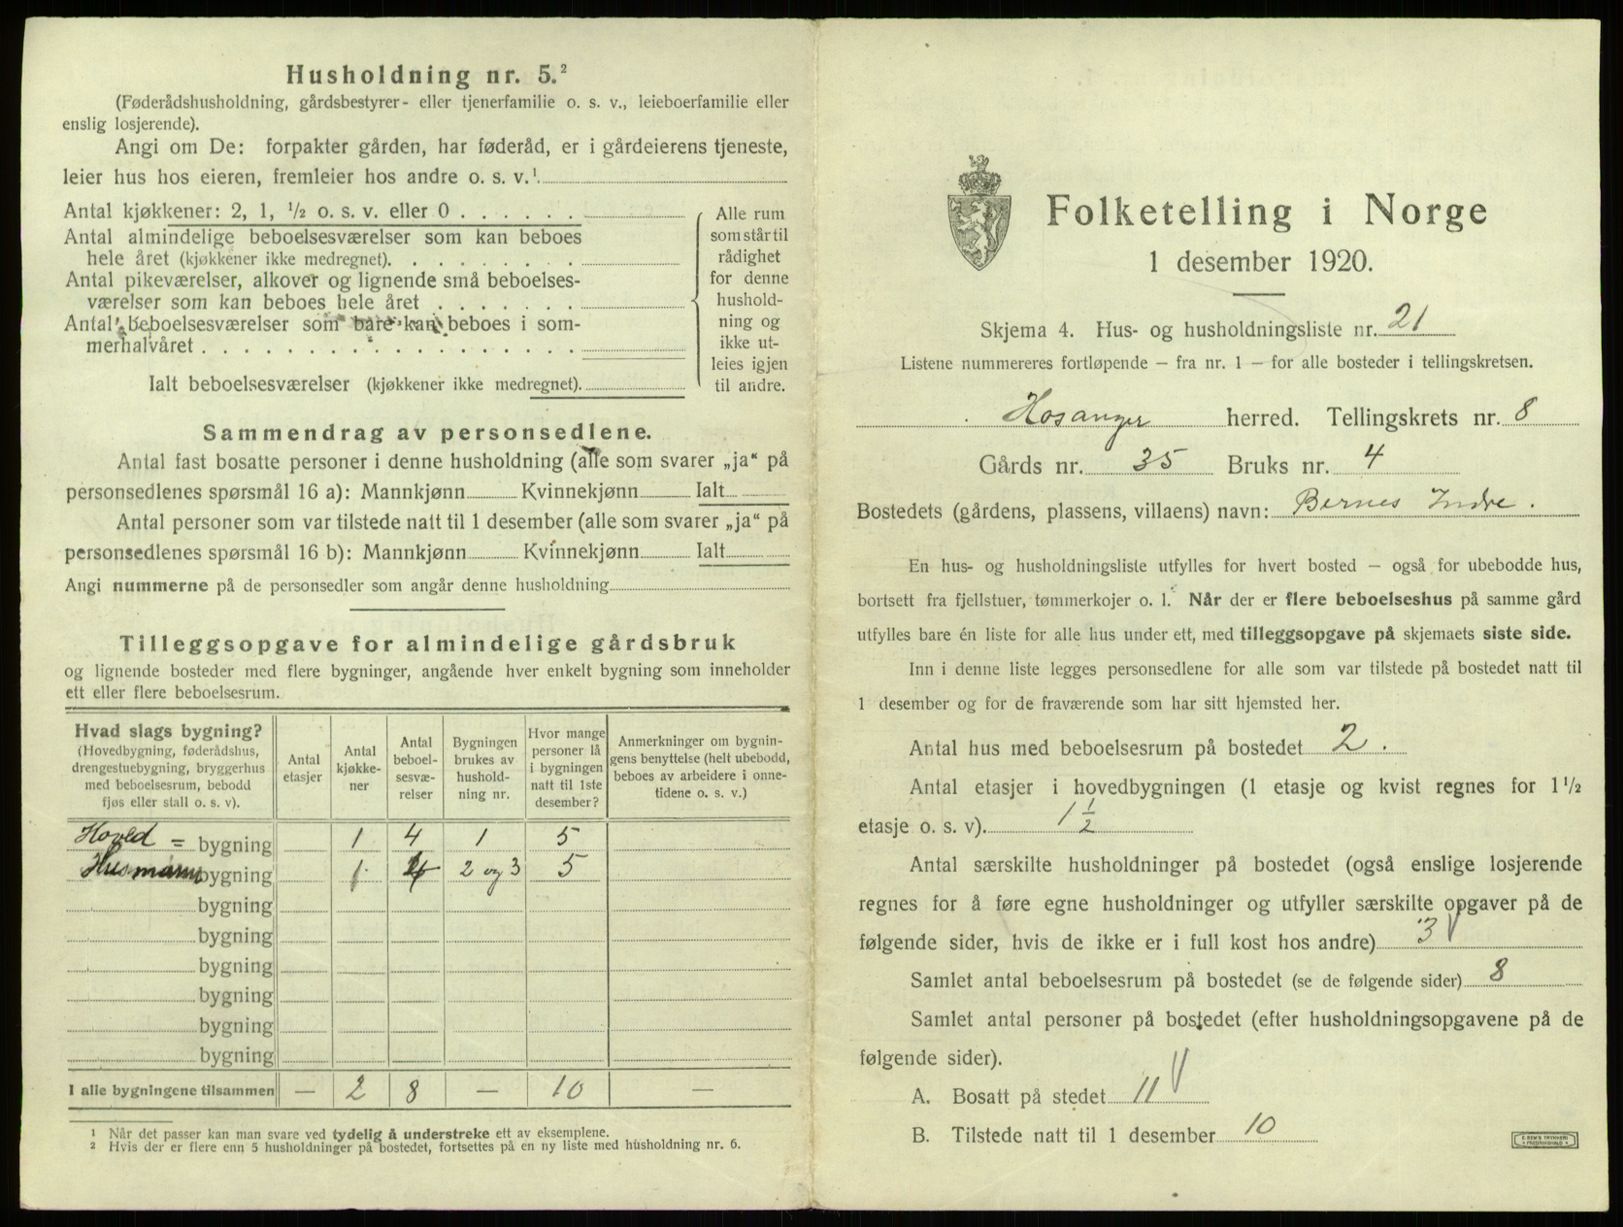 Husholdning nr. 5.²
(Føderådshusholdning, gårdsbestyrer- eller tjenerfamilie o. s. v., leieboerfamilie eller
enslig losjerende).
Angi om De: forpakter gården, har føderåd, er i gårdeierens tjeneste,
leier hus hos eieren, fremleier hos andre o. s. v.¹
Antal kjøkkener: 2, 1, ½ o. s. v. eller 0 . . . . . .
Antal almindelige beboelsesværelser som kan beboes
hele året (kjøkkener ikke medregnet). . . . . . . .
Antal pikeværelser, alkover og lignende små beboelses-
værelser som kan beboes hele året . . . . . . .
Antal beboelsesværelser som bare kan beboes i som-
merhalvåret . . . . . . . . . . . . . . . . . .
Ialt beboelsesværelser (kjøkkener ikke medregnet).
Alle rum
som står til
rådighet
for denne
hushold-
ning og
ikke ut-
leies igjen
til andre.
Sammendrag av personsedlene.
Antal fast bosatte personer i denne husholdning (alle som svarer „ja“ på
personsedlenes spørsmål 16 a): Mannkjønn Kvinnekjønn Ialt
Antal personer som var tilstede natt til 1 desember (alle som svarer „ja“ på
personsedlenes spørsmål 16 b): Mannkjønn Kvinnekjønn Ialt
Angi nummerne på de personsedler som angår denne husholdning
Tilleggsopgave for almindelige gårdsbruk
og lignende bosteder med flere bygninger, angående hver enkelt bygning som inneholder
ett eller flere beboelsesrum.
Hvad slags bygning?
(Hovedbygning, føderådshus,
drengestuebygning, bryggerhus
med beboelsesrum, bebodd
fjøs eller stall o. s. v).
Antal
etasjer
Antal
kjøkke-
ner
Antal
beboel-
sesvæ-
relser
Bygningen
brukes av
hushold-
ning nr.
Hvor mange
personer lå
i bygningen
natt til 1ste
desember?
Anmerkninger om bygnin-
gens benyttelse (helt ubebodd,
beboes av arbeidere i onne-
tidene o. s. v.)
Hoved = bygning 1 4 1 5
Husmann bygning 1 4 2 og 3 5
bygning
bygning
bygning
bygning
bygning
bygning
I alle bygningene tilsammen — 2 8 — 10 —
¹ Når det passer kan man svare ved tydelig å understreke ett av eksemplene.
² Hvis der er flere enn 5 husholdninger på bostedet, fortsettes på en ny liste med husholdning nr. 6.
Folketelling i Norge
1 desember 1920.
Skjema 4. Hus- og husholdningsliste nr. 21
Listene nummereres fortløpende — fra nr. 1 — for alle bosteder i tellingskretsen.
Hosanger herred. Tellingskrets nr. 8
Gårds nr. 35 Bruks nr. 4
Bostedets (gårdens, plassens, villaens) navn: Bernes Indre.
En hus- og husholdningsliste utfylles for hvert bosted — også for ubebodde hus,
bortsett fra fjellstuer, tømmerkojer o. l. Når der er flere beboelseshus på samme gård
utfylles bare én liste for alle hus under ett, med tilleggsopgave på skjemaets siste side.
Inn i denne liste legges personsedlene for alle som var tilstede på bostedet natt til
1 desember og for de fraværende som har sitt hjemsted her.
Antal hus med beboelsesrum på bostedet 2.
Antal etasjer i hovedbygningen (1 etasje og kvist regnes for 1½
etasje o. s. v). 1½
Antal særskilte husholdninger på bostedet (også enslige losjerende
regnes for å føre egne husholdninger og utfyller særskilte opgaver på de
følgende sider, hvis de ikke er i full kost hos andre) 3
Samlet antal beboelsesrum på bostedet (se de følgende sider) 8
Samlet antal personer på bostedet (efter husholdningsopgavene på de
følgende sider).
A. Bosatt på stedet 11
B. Tilstede natt til 1 desember 10